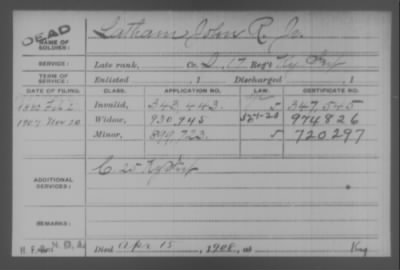 DEAD
NAME OF SOLDIER: Latham, John R. Jr
SERVICE: Late rank, Co. D, 17 Reg't Ky Inf
TERM OF SERVICE: Enlisted , 1 Discharged , 1
DATE OF FILING. CLASS. APPLICATION NO. LAW. CERTIFICATE NO.
Invalid, 343,443. 347,545
1907 Nov 20 Widow, 930,945 974826
Minor, 899,723. 5 720297
ADDITIONAL SERVICES: C. 25 Ky Inf
REMARKS:
Died Apr 15, 1908, at Ky